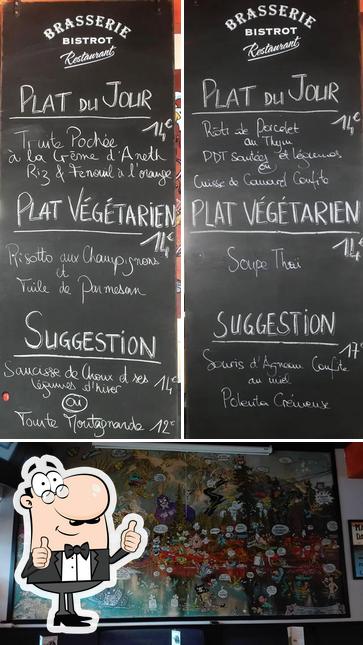 BRASSERIE
BISTROT
Restaurant
PLAT DU JOUR
14€
Truite Pochée
à la Crème d'Aneth
Riz & Fenouil à l'orange
PLAT VÉGÉTARIEN
14€
Risotto aux Champignons
et
Tuile de Parmesan
SUGGESTION
Saucisse de Choux et ses
légumes d'hiver 14€
OU
Tourte Montagnarde 12€
BRASSERIE
BISTROT
Restaurant
PLAT DU JOUR
14€
Rôti de Porcelet
au Thym
PDT sautées et légumes
ou
Cuisse de Canard Confite
PLAT VÉGÉTARIEN
14€
Soupe Thaï
SUGGESTION
17€
Souris d'Agneau Confite
au miel
Polenta Crémeuse